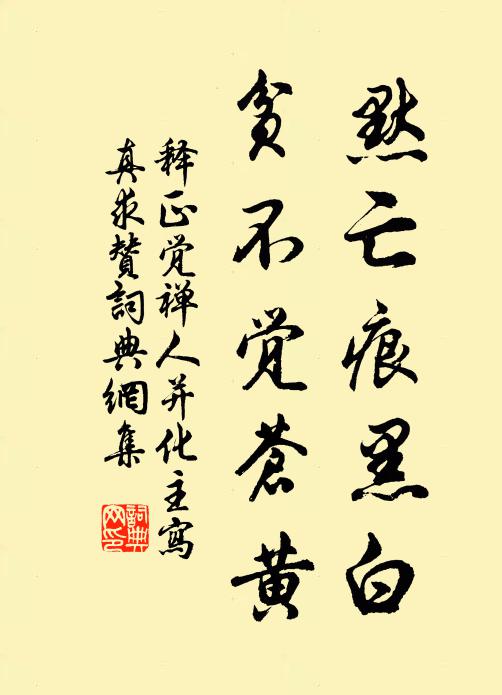 默亡痕黑白
贫不觉苍黄
释正觉禅人并化主写
真求赞词典網集
詞典网印